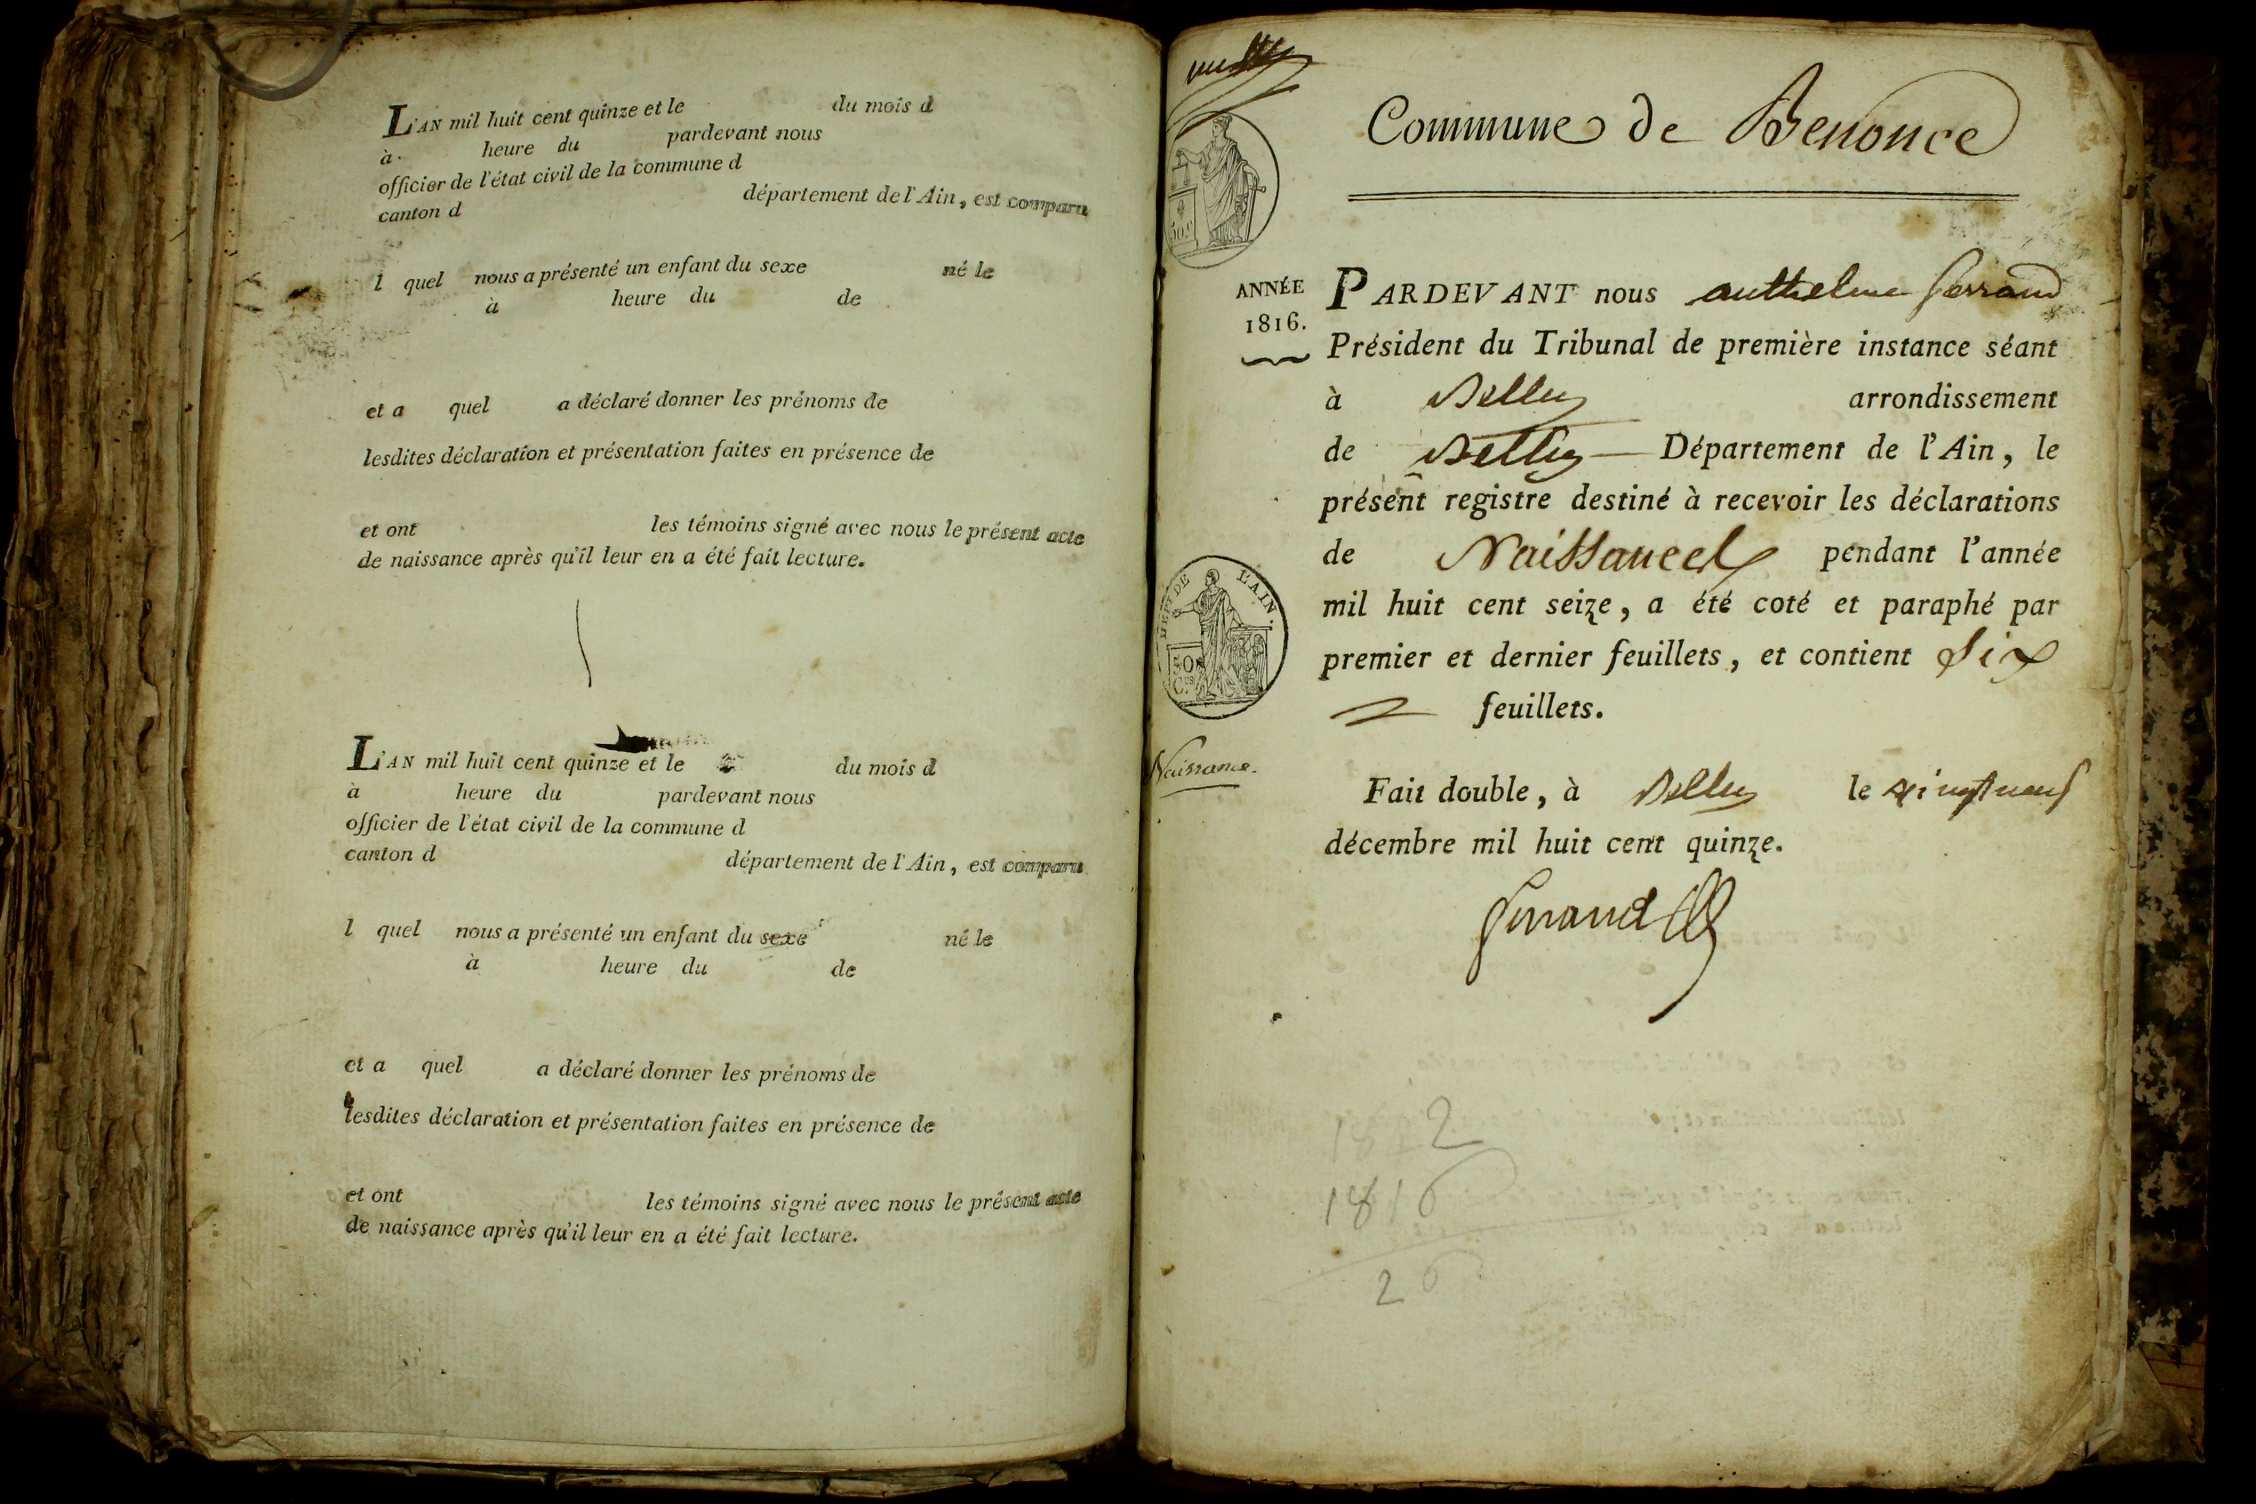 L'AN mil huit cent quinze et le du mois d
à heure du pardevant nous
officier de l'état civil de la commune d
canton d département de l'Ain, est comparu
l quel nous a présenté un enfant du sexe né le
à heure du de
et a quel a déclaré donner les prénoms de
lesdites déclaration et présentation faites en présence de
et ont les témoins signé avec nous le présent acte
de naissance après qu'il leur en a été fait lecture.
L'AN mil huit cent quinze et le du mois d
à heure du pardevant nous
officier de l'état civil de la commune d
canton d département de l'Ain, est comparu
l quel nous a présenté un enfant du sexe né le
à heure du de
et a quel a déclaré donner les prénoms de
lesdites déclaration et présentation faites en présence de
et ont les témoins signé avec nous le présent acte
de naissance après qu'il leur en a été fait lecture.
Commune de Benonce
50 c
ANNÉE
1816.
PARDEVANT nous anthelme ferrand
Président du Tribunal de première instance séant
à Belley arrondissement
de Belley Département de l'Ain, le
présent registre destiné à recevoir les déclarations
de Naissances pendant l'année
mil huit cent seize, a été coté et paraphé par
premier et dernier feuillets, et contient six
feuillets.
DEPT DE L'AIN.
50
Naissance.
Fait double, à Belley le vingt neuf
décembre mil huit cent quinze.
ferrand
1816
26